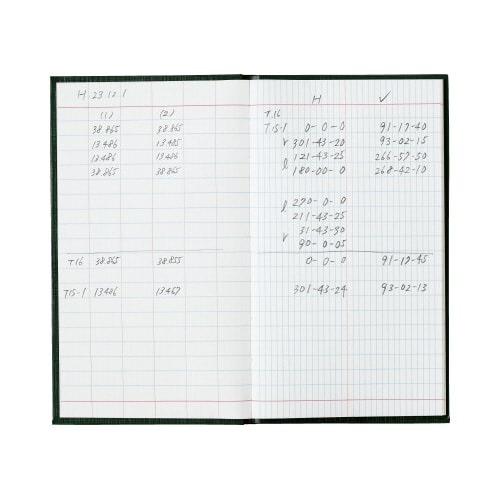 H 23.12.1
(1) (2)
38.865 38.865
13.486 13.485
13.486 13.486
38.865 38.865
T16 38.865 38.855
T15-1 13.486 13.467
H ✓
T.16
T15-1 0-0-0 91-17-40
r 301-43-20 93-02-15
l 121-43-25 266-57-50
180-00-0 268-42-10
l 270-0-0
211-43-25
r 31-43-30
90-0-05
0-0-0 91-17-45
301-43-24 93-02-13